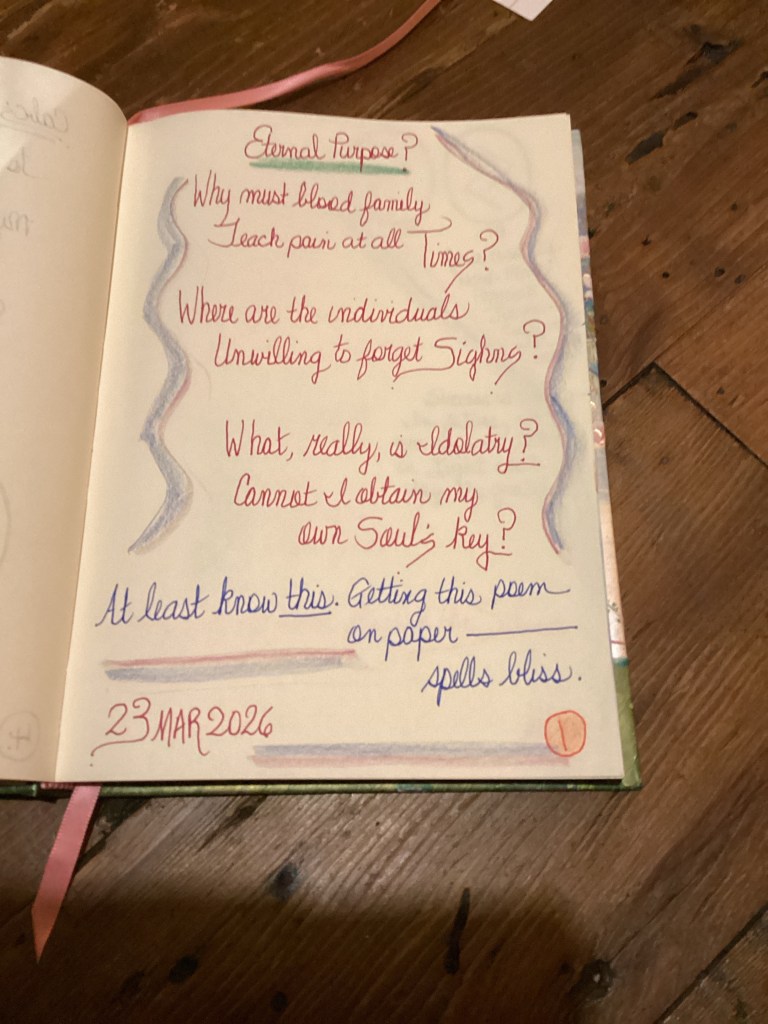 Eternal Purpose?
Why must blood family
Teach pain at all Times?
Where are the individuals
Unwilling to forget Sighing?
What, really, is Idolatry?
Cannot I obtain my
own Soul's key?
At least know this. Getting this poem
on paper ———
spells bliss.
23 MAR 2026
1
4.